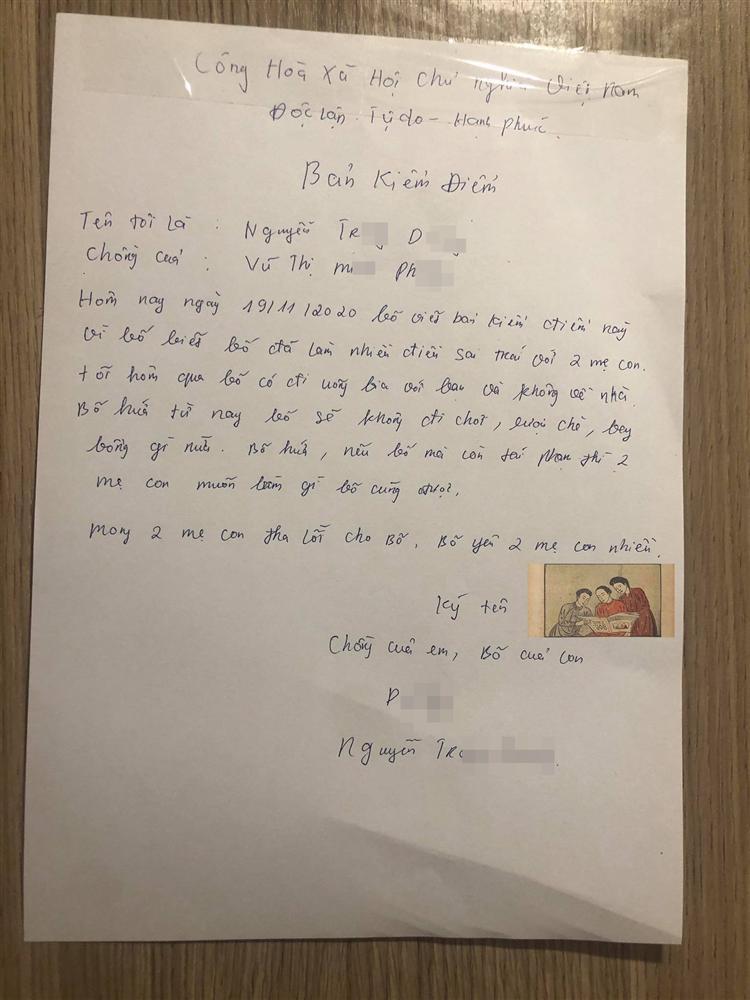 Công Hoà Xã Hội Chủ nghĩa Việt Nam
Độc lập - Tự do - Hạnh phúc
Bản Kiểm Điểm
Tên tôi là : Nguyễn Tr D
Chồng của : Vũ Thị Mi Ph
Hôm nay ngày 19/11/2020 bố viết bản kiểm điểm này
vì bố biết bố đã làm nhiều điều sai trái với 2 mẹ con.
tối hôm qua bố có đi uống bia với bạn và không về nhà.
Bố hứa từ nay bố sẽ không đi chơi, rượu chè, bay
bổng gì nữa. Bố hứa, nếu bố mà còn tái phạm thì 2
mẹ con muốn làm gì bố cũng được.
Mong 2 mẹ con tha lỗi cho Bố. Bố yêu 2 mẹ con nhiều.
Ký tên
Chồng của em, Bố của con
D
Nguyễn Tr